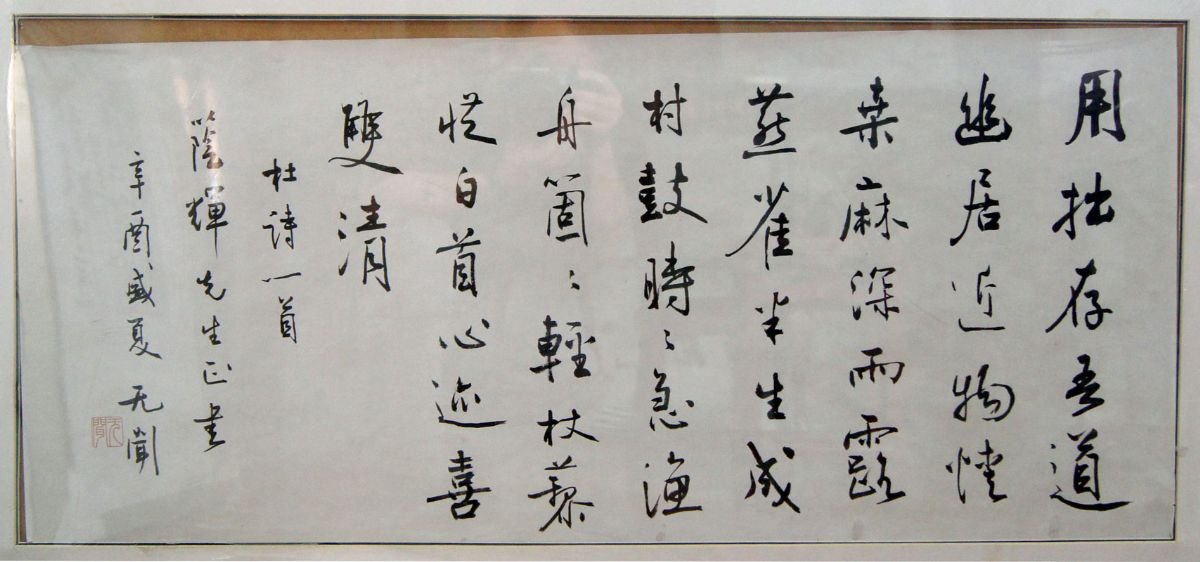 用拙存吾道
幽居近物情
桒麻深雨露
燕雀半生成
村鼓時〻急漁
舟箇〻輕杖藜
從白首心迹喜
雙清
杜詩一首
蔭輝先生正書
辛酉盛夏 无聞
无聞